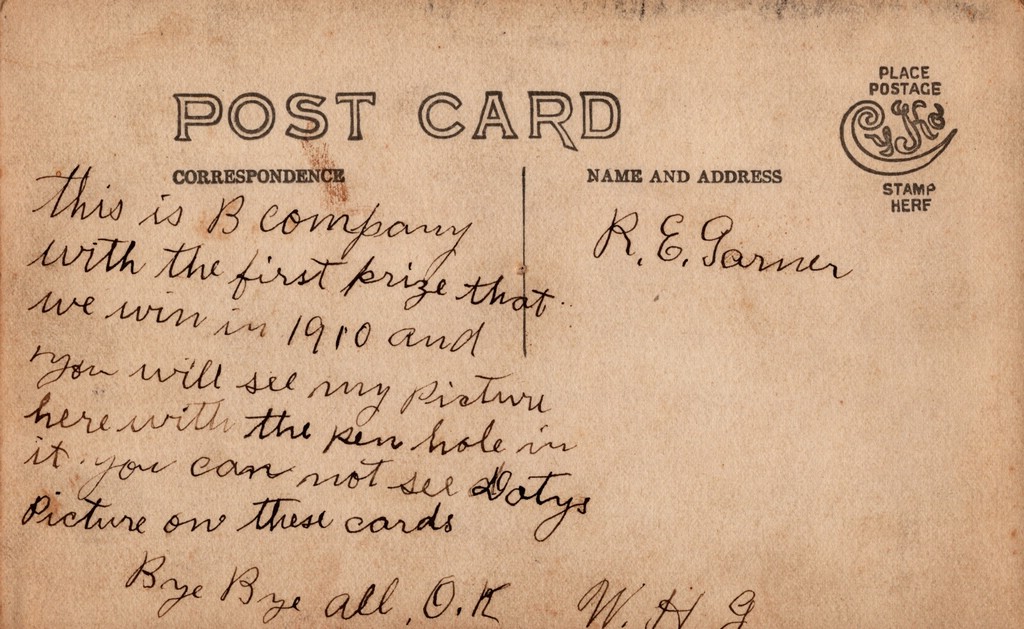 POST CARD
PLACE
POSTAGE
CYKO
STAMP
HERE
CORRESPONDENCE
NAME AND ADDRESS
this is B company
with the first prize that
we win in 1910 and
you will see my picture
here with the pen hole in
it. you can not see Dotys
Picture on these cards
Bye Bye all, O.K
W. H G
R. E. Garner